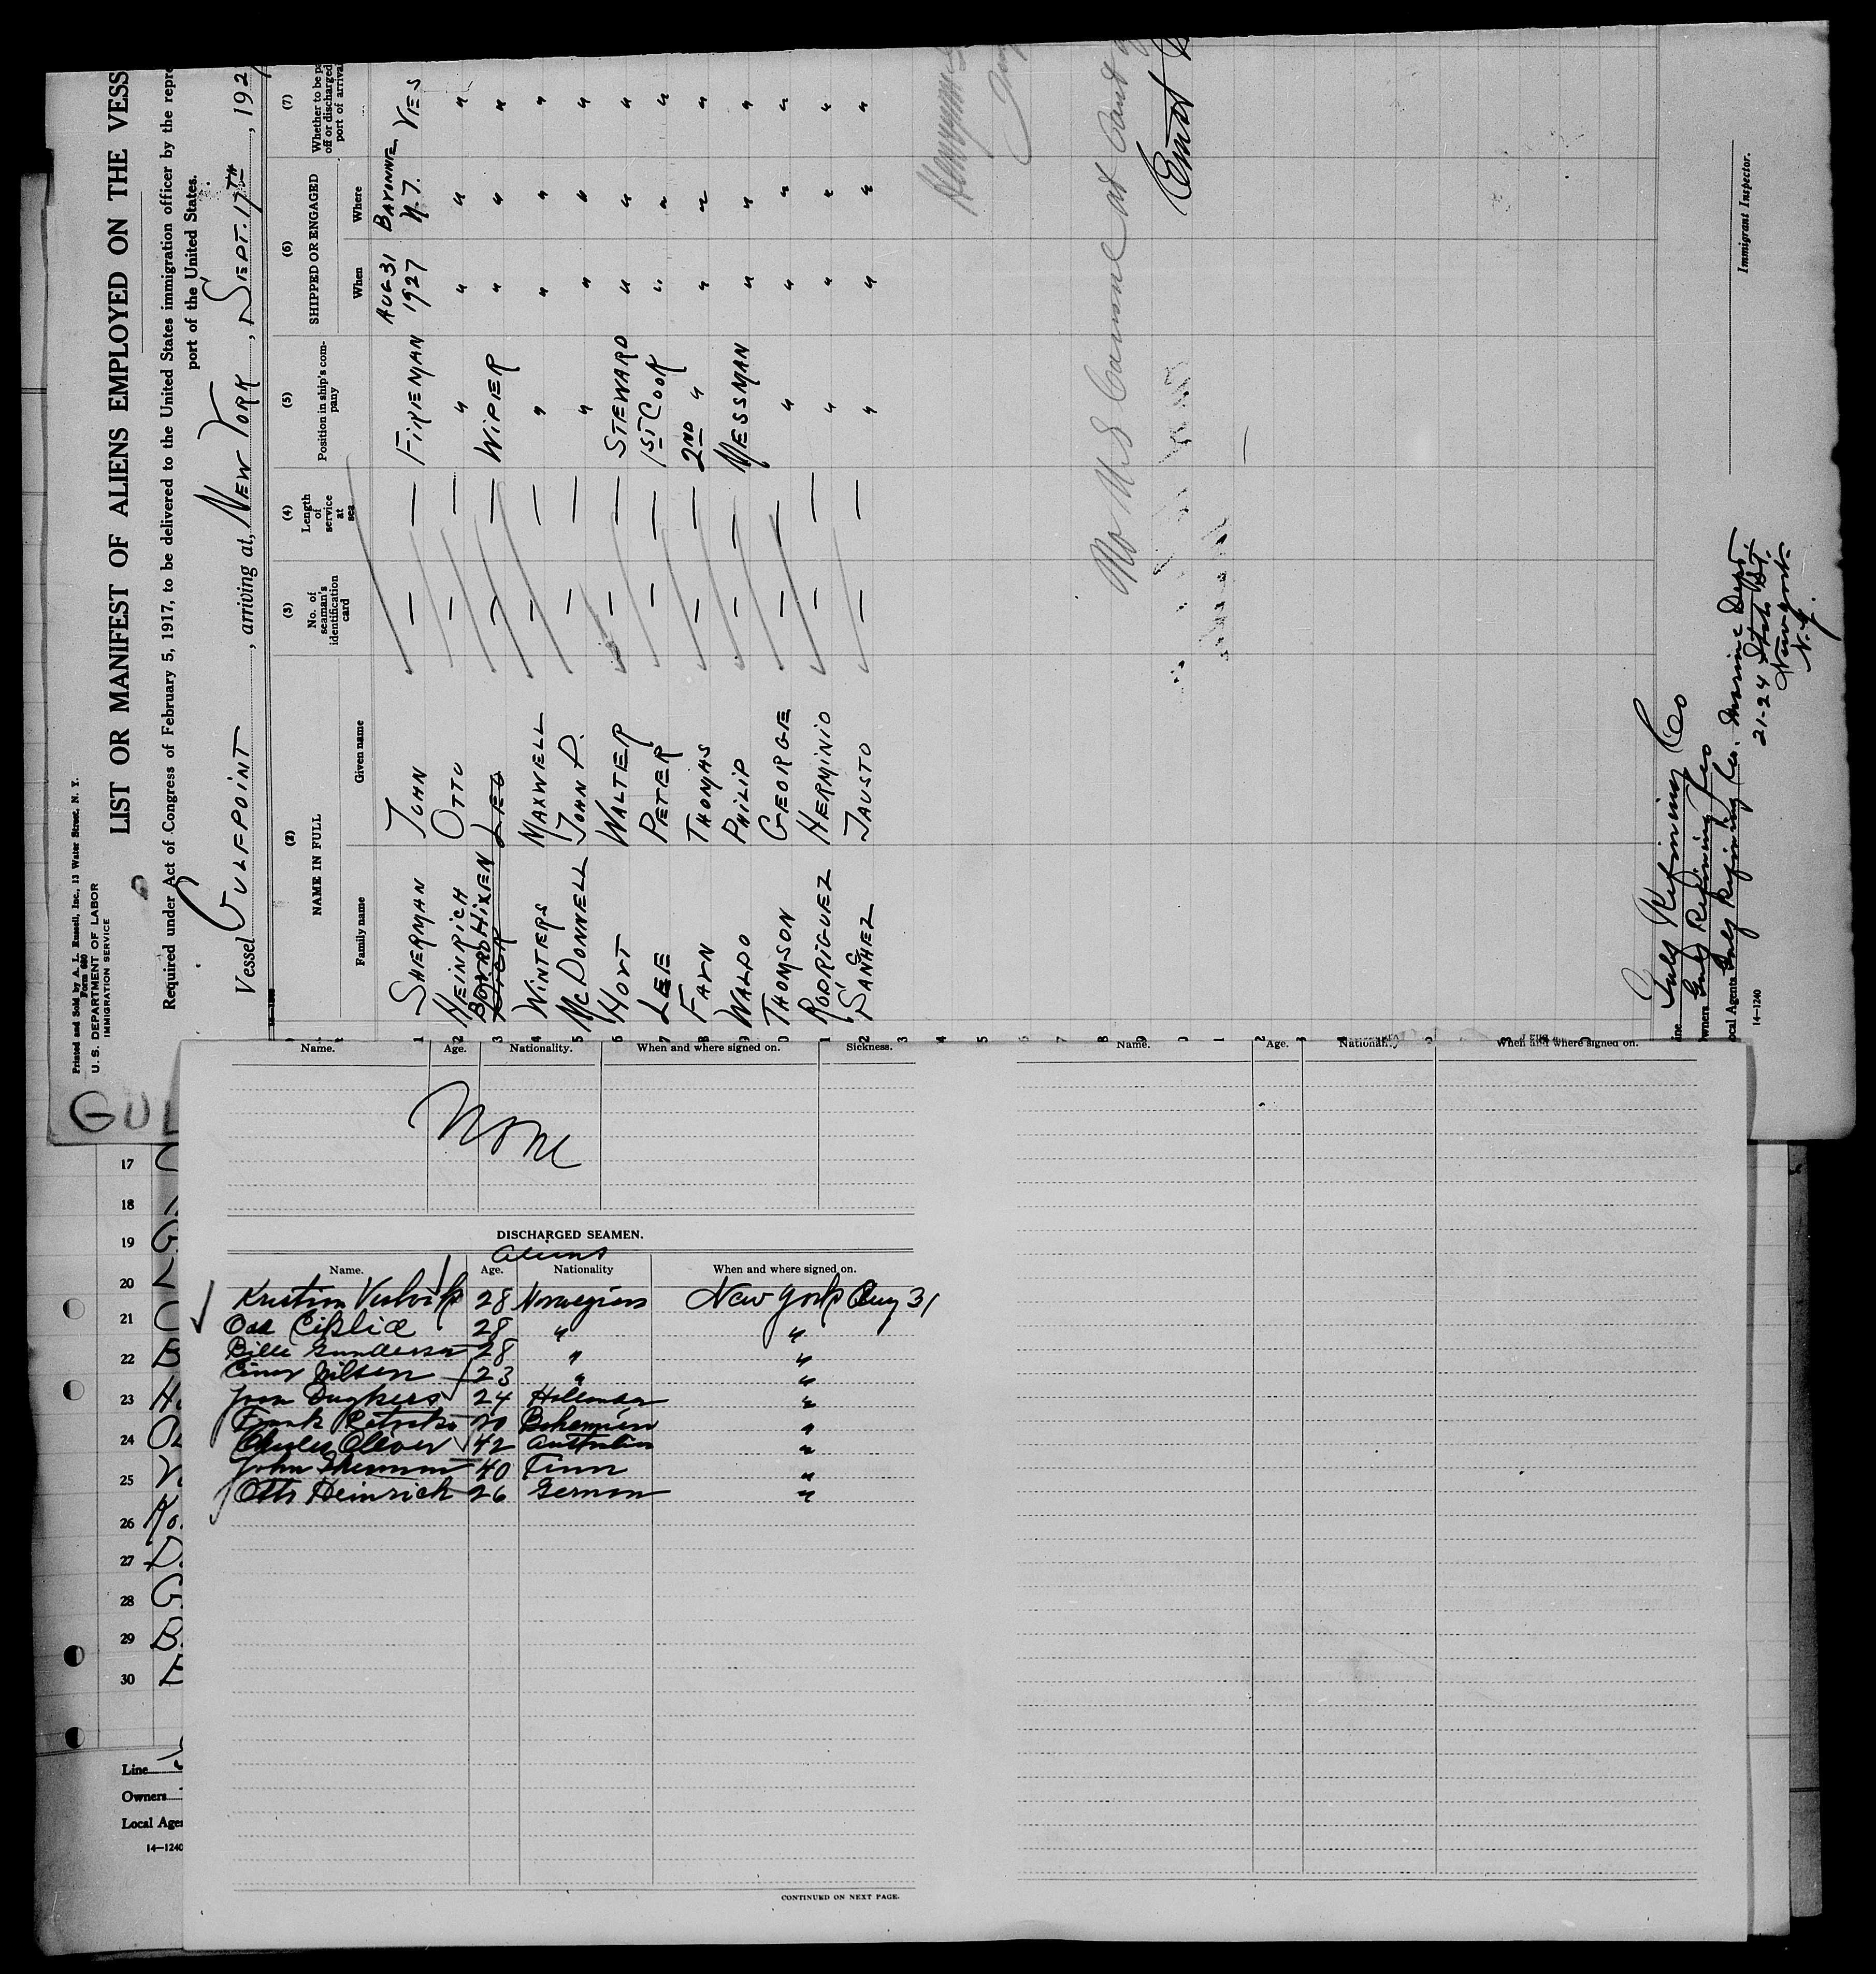 Printed and Sold by A. L. Russell, Inc., 13 Water Street, N. Y.
Form 680
U. S. DEPARTMENT OF LABOR
IMMIGRATION SERVICE
LIST OR MANIFEST OF ALIENS EMPLOYED ON THE VESS
Required under Act of Congress of February 5, 1917, to be delivered to the United States immigration officer by the repre
port of the United States.
Vessel GULFPOINT, arriving at, NEW YORK, SEPT. 17TH, 192
(2) (3) (4) (5) (6) (7)
NAME IN FULL No. of seaman's identification card Length of service at sea Position in ship's company SHIPPED OR ENGAGED Whether to be pa off or discharged port of arrival
Family name Given name When Where
1 SHERMAN JOHN — — FIREMAN AUG-31 1927 BAYONNE N.J. YES
2 HEINRICH OTTO — — " " " "
3 LEO — — WIPER " " "
4 WINTERS MAXWELL — — " " " "
5 McDONNELL JOHN P. — — " " " "
6 HOYT WALTER — — STEWARD " " "
7 LEE PETER — — 1ST COOK " " "
8 FARN THOMAS — — 2ND " " " "
9 WALDO PHILIP — — MESSMAN " " "
0 THOMSON GEORGE — — " " " "
1 RODRIGUEZ HERMINIO — — " " " "
2 SANCHEZ FAUSTO — — " " " "
3
4
5
6
7
8
9
0
1
2
3
No
at
Immigrant Inspector.
ine Gulf Refining Co
wners Gulf Refining Co
ocal Agents Gulf Refining Co. Marine Dept.
21-24 State St.
New York
N.Y.
14—1240
GUL
Name. Age. Nationality. When and where signed on. Sickness.
None
DISCHARGED SEAMEN.
Aliens
Name. Age. Nationality When and where signed on.
28 Norwegian New York Aug 31
28 " "
Gunderson 28 " "
Einar Nilsen 23 " "
24 Hollander "
Frank 20 Bohemian "
Charles Oliver 42 Australian "
John Sherman 40 Finn "
Otto Heinrich 26 German "
CONTINUED ON NEXT PAGE.
Name. Age. Nationality When and where signed on.
17
18
19
20
21
22
23
24
25
26
27
28
29
30
Line
Owners
Local Age
14—1240